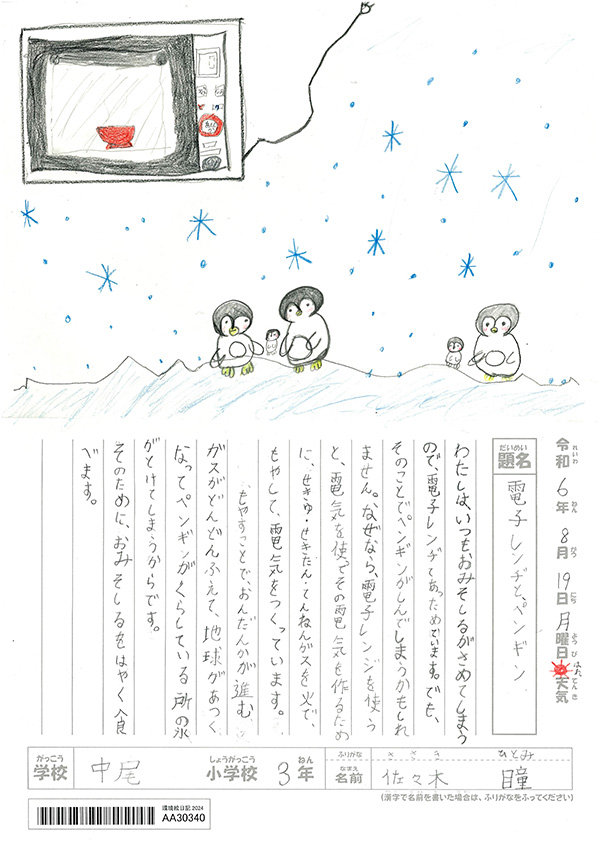 令和6年8月19日月曜日 天気
れいわ ねん がつ にち ようび はれ てんき
だいめい
題名 電子レンヂと、ペンギン
わたしは、いつもおみそしるがさめてしまう
ので、電子レンヂであっためています。でも、
そのことでペンギンがしんでしまうかもしれ
ません。なぜなら、電子レンジを使う
と、電気を使ってその電気を作るため
に、せきゆ・せきたん・てんねんガスを火で、
もやして、電気をつくっています。
もやすことで、おんだんかが進む
ガスがどんどんふえて、地球があつく
なってペンギンがくらしている所の氷
がとけてしまうからです。
そのために、おみそしるをはやく食
べます。
がっこう しょうがっこう ねん
学校 中尾 小学校 3年
ふりがな ささき ひとみ
なまえ
名前 佐々木 瞳
(漢字で名前を書いた場合は、ふりがなをふってください)
環境絵日記 2024
AA30340